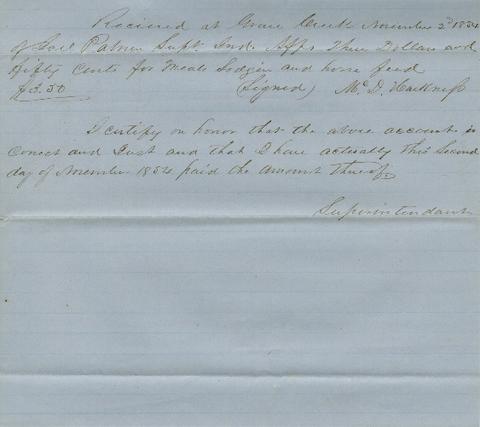 Recieved at Grave Creek November 2d 1854
of Joel Palmer Supt. Ind. Affs Three Dollars and
fifty Cents for Meals Lodgin and horse feed
$3.50 (Signed) Mc D. Harkness
I certify on honor that the above account is
Correct and Just and that I have actually this Second
day of November 1854 paid the amount thereof
Superintendant